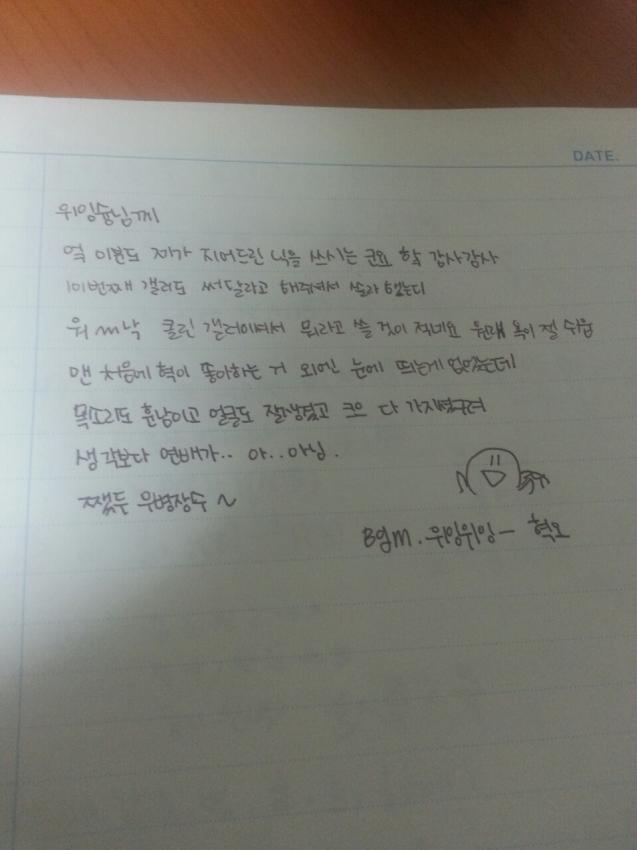 DATE.
위잉슝님께
역 이분도 제가 지어드린 닉을 쓰시는 군요 핰 감사감사
101번째 갤러도 써달라고 해주셔서 쓸라 했는디
워 낙 클린 갤러이셔서 뭐라고 쓸 것이 적네요 원래 욕이 젤 쉬움
맨 처음에 혁이 좋아하는 거 외엔 눈에 띄는게 없었는데
목소리도 훈남이고 얼굴도 잘생겼고 크으 다 가지셨구려
생각보다 연배가.. 아..아님.
쨌든 위병장수 ~
BgM. 위잉위잉 - 혁오